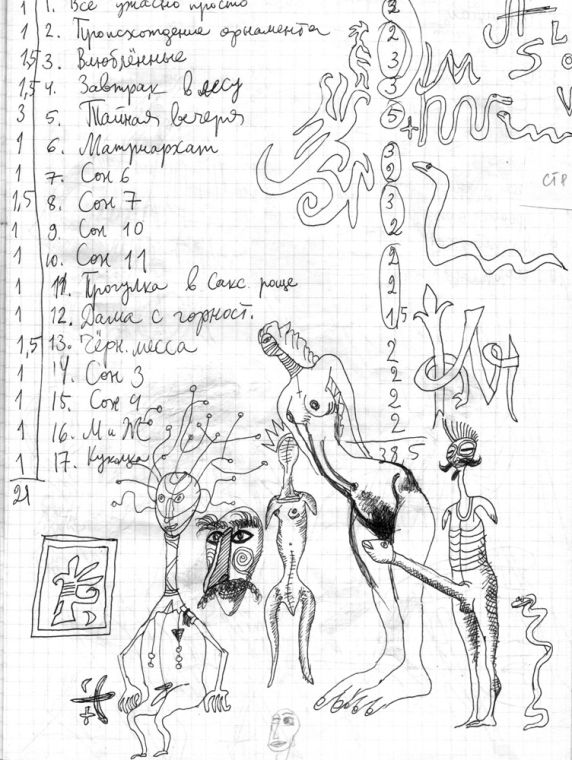 1 1. Всё ужасно просто 3
1 2. Происхождение орнамента 2
1,5 3. Влюблённые 3
1,5 4. Завтрак в лесу 3
3 5. Тайная вечеря 5
1 6. Матриархат 3
1 7. Сон 6 2
1,5 8. Сон 7 3
1 9. Сон 10 2
1 10. Сон 11 2
1 11. Прогулка в Сакс. роще 2
1 12. Дама с горност. 1,5
1,5 13. Чёрн. месса 2
1 14. Сон 3 2
1 15. Сон 4 2
1 16. М и Ж 2
1 17. Куколка
21 38,5
стр